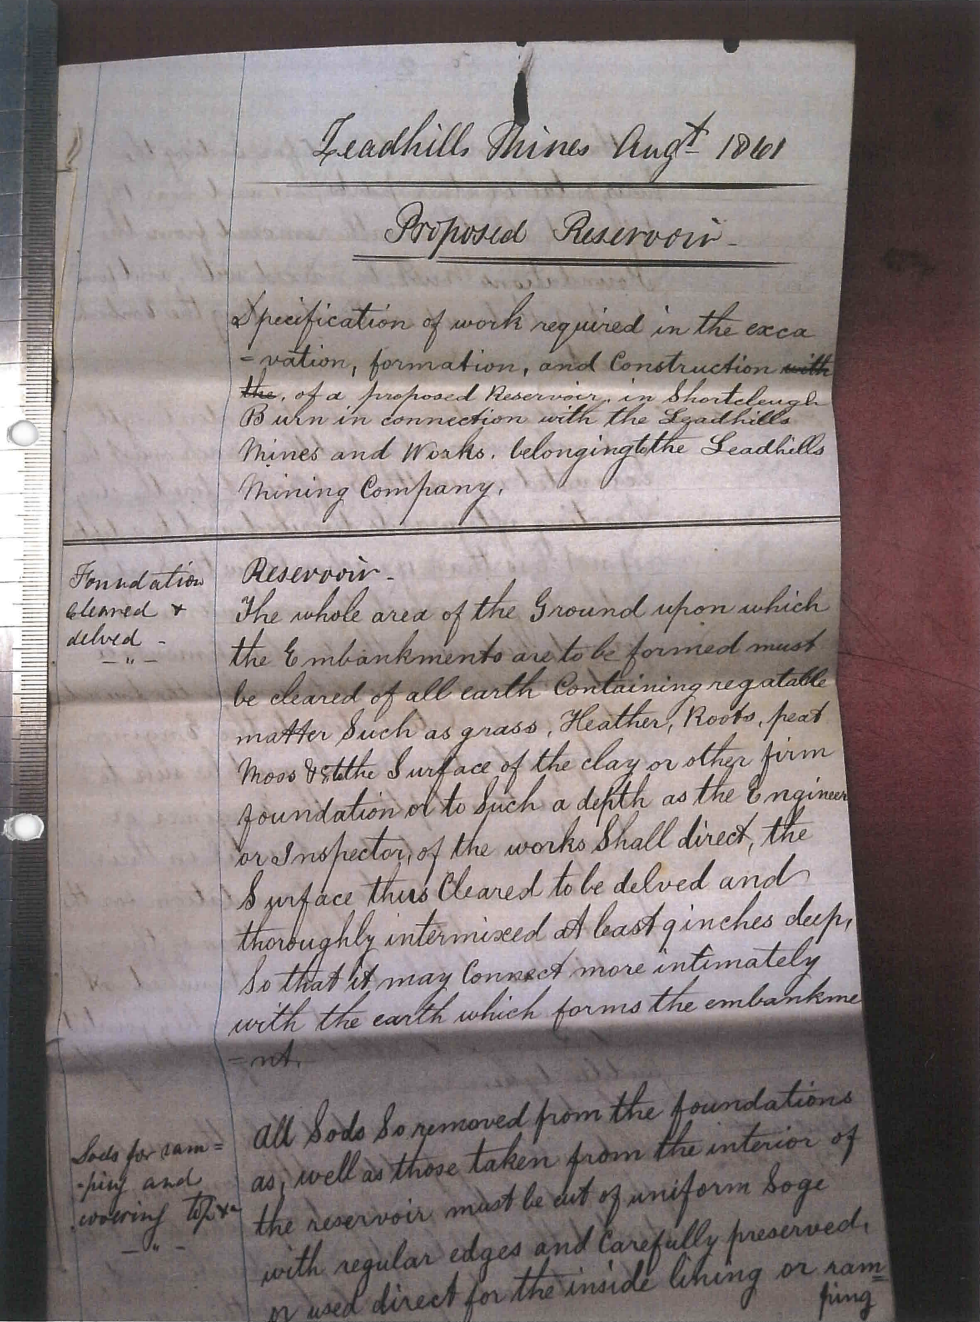 Leadhills Mines Augt 1861
Proposed Reservoir -
Specification of work required in the exca
= vation, formation, and Construction with
the, of a proposed Reservoir, in Shortcleugh
Burn in connection with the Leadhills
Mines and Works. belonging to the Leadhills
Mining Company.
Foundation
cleared &
delved -
- " -
Reservoir -
The whole area of the Ground upon which
the Embankments are to be formed must
be cleared of all earth Containing regatable
matter Such as grass, Heather, Roots, peat
Moss & the Surface of the clay or other firm
foundation or to Such a depth as the Engineer
or Inspector, of the works Shall direct, the
Surface thus Cleared to be delved and
thoroughly intermixed at least 9 inches deep,
So that it may Connect more intimately
with the earth which forms the embankme
= nt.
Sods for ram =
- ping and
covering top &c
- " -
All Sods So removed from the foundations
as, well as those taken from the interior of
the reservoir must be cut of uniform Soge
with regular edges and Carefully preserved,
or used direct for the inside lining or ram=
ping